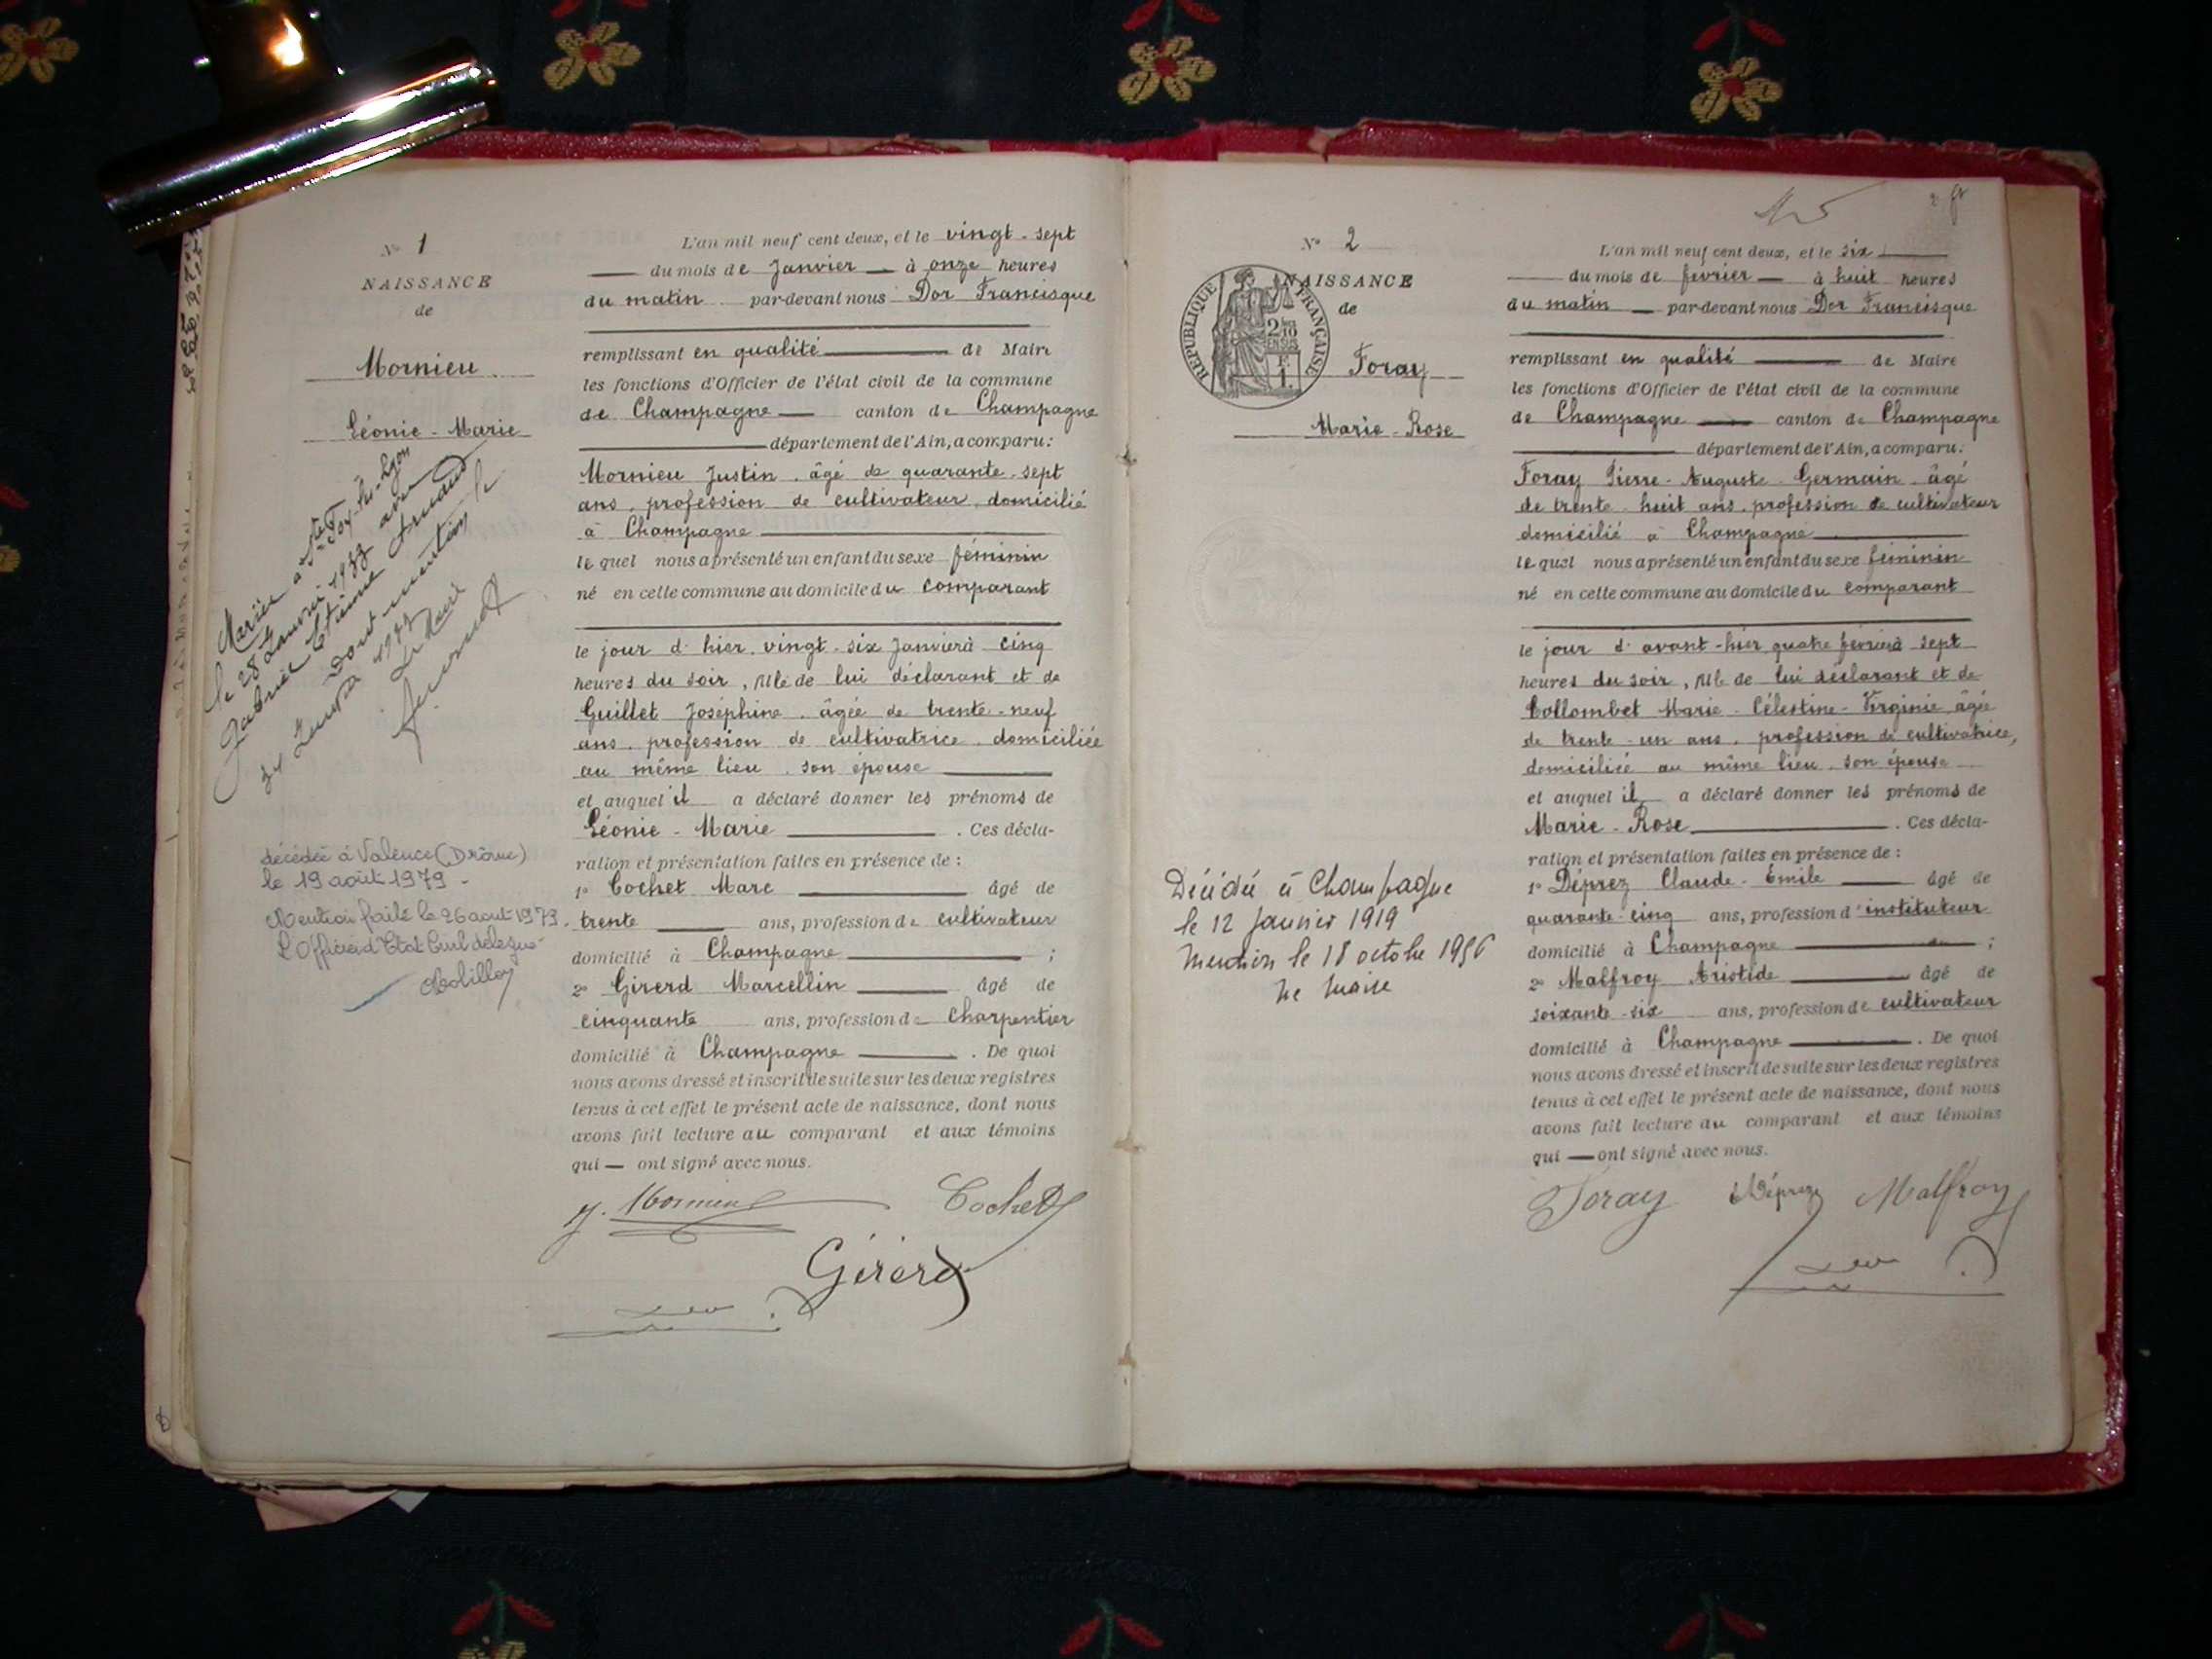 N° 1
NAISSANCE
de
Mornieu
Léonie - Marie
Mariée à
le 28 Janvier avec
Gabriel Etienne
Dont mention le
Le Maire
décédée à Valence (Drôme)
le 19 août 1979 -
Mention faite le 26 aout 1979.
L'Officier d'Etat Civil délégué
L'an mil neuf cent deux, et le vingt-sept
du mois de Janvier à onze heures
du matin par-devant nous Dor Francisque
remplissant en qualité de Maire
les fonctions d'Officier de l'état civil de la commune
de Champagne canton de Champagne
département de l'Ain, a comparu:
Mornieu Justin, âgé de quarante-sept
ans, profession de cultivateur, domicilié
à Champagne
lequel nous a présenté un enfant du sexe féminin
né en cette commune au domicile du comparant
le jour d'hier, vingt-six Janvier à cinq
heures du soir, fille de lui déclarant et de
Guillet Joséphine, âgée de trente-neuf
ans, profession de cultivatrice, domiciliée
au même lieu, son épouse
et auquel il a déclaré donner les prénoms de
Léonie - Marie . Ces décla-
ration et présentation faites en présence de :
1° Cochet Marc âgé de
trente ans, profession de cultivateur
domicilié à Champagne ;
2° Girerd Marcellin âgé de
cinquante ans, profession de Charpentier
domicilié à Champagne . De quoi
nous avons dressé et inscrit de suite sur les deux registres
tenus à cet effet le présent acte de naissance, dont nous
avons fait lecture au comparant et aux témoins
qui — ont signé avec nous.
J. Mornieu Cochet
Girerd
N° 2
NAISSANCE
de
RÉPUBLIQUE FRANÇAISE
Foray
Marie - Rose
Décédée à Champagne
le 12 Janvier 1919
Mention le 18 octobre 1956
Le Maire
L'an mil neuf cent deux, et le six
du mois de février — à huit heures
du matin — par-devant nous Dor Francisque
remplissant en qualité de Maire
les fonctions d'Officier de l'état civil de la commune
de Champagne canton de Champagne
département de l'Ain, a comparu:
Foray Pierre-Auguste-Germain, âgé
de trente-huit ans, profession de cultivateur
domicilié à Champagne
lequel nous a présenté un enfant du sexe féminin
né en cette commune au domicile du comparant
le jour d'avant-hier quatre février à sept
heures du soir, fille de lui déclarant et de
Collombet Marie-Célestine-Virginie, âgée
de trente-un ans, profession de cultivatrice,
domiciliée au même lieu, son épouse
et auquel il a déclaré donner les prénoms de
Marie - Rose . Ces décla-
ration et présentation faites en présence de :
1° Déprez Claude-Émile âgé de
quarante-cinq ans, profession d'instituteur
domicilié à Champagne ;
2° Malfroy Aristide âgé de
soixante-six ans, profession de cultivateur
domicilié à Champagne . De quoi
nous avons dressé et inscrit de suite sur les deux registres
tenus à cet effet le présent acte de naissance, dont nous
avons fait lecture au comparant et aux témoins
qui — ont signé avec nous.
Foray Déprez Malfroy